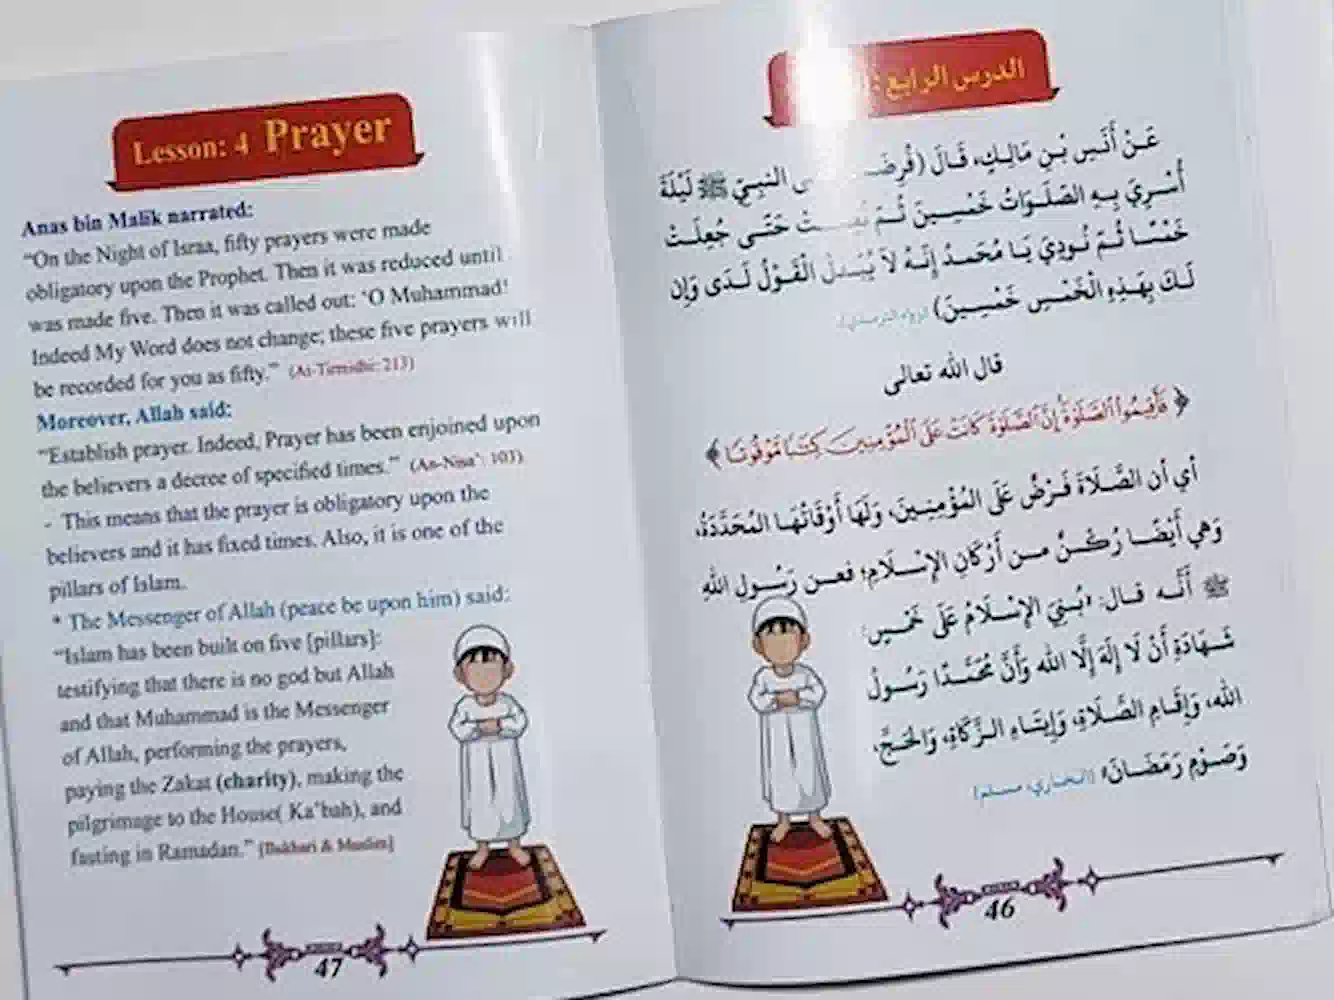 Lesson: 4 Prayer
Anas bin Malik narrated:
"On the Night of Israa, fifty prayers were made
obligatory upon the Prophet. Then it was reduced until
was made five. Then it was called out: 'O Muhammad!
Indeed My Word does not change; these five prayers will
be recorded for you as fifty." (At-Tirmidhi: 213)
Moreover, Allah said:
"Establish prayer. Indeed, Prayer has been enjoined upon
the believers a decree of specified times." (An-Nisa': 103)
- This means that the prayer is obligatory upon the
believers and it has fixed times. Also, it is one of the
pillars of Islam.
* The Messenger of Allah (peace be upon him) said:
"Islam has been built on five [pillars]:
testifying that there is no god but Allah
and that Muhammad is the Messenger
of Allah, performing the prayers,
paying the Zakat (charity), making the
pilgrimage to the House( Ka'bah), and
fasting in Ramadan." [Bukhari & Muslim]
47
الدرس الرابع:
عَنْ أَنَسِ بْنِ مَالِكٍ، قَالَ (فُرِضَـ النبِيّ ﷺ لَيْلَةَ
أُسْرِيَ بِهِ الصَّلَوَاتُ خَمْسِينَ ثُمَّ حَتَّى جُعِلَتْ
خَمْسًا ثُمَّ نُودِيَ يَا مُحَمَدُ إِنَّهُ لاَ يُبَدلُ الْقَوْلُ لَدَى وَإِن
لَكَ بِهَذِهِ الْخَمْسِ خَمْسِينَ) (رواه الترمذي).
قال الله تعالى
﴿ فَأَقِيمُوا۟ ٱلصَّلَوٰةَ إِنَّ ٱلصَّلَوٰةَ كَانَتْ عَلَى ٱلْمُؤْمِنِينَ كِتَٰبًا مَّوْقُوتًا ﴾
أي أن الصَّلَاةَ فَرْضُ عَلَى المُؤْمِنِينَ، وَلَهَا أَوْقَاتُهَا المُحَدَّدَةُ،
وَهي أَيْضًا رُكْنٌ من أَرْكَانِ الإِسْلَامِ؛ فعن رَسُولِ اللهِ
ﷺ أَنَّه قال: «بُنِيَ الإِسْلَامُ عَلَى خَمْسٍ:
شَهَادَةِ أَنْ لَا إِلَهَ إِلَّا الله وَأَنَّ مُحَمَّدًا رَسُولُ
الله، وَإِقَامِ الصَّلَاةِ، وَإِيتَاءِ الزَّكَاةِ، وَالحَجِّ،
وَصَوْمِ رَمَضَانَ» (البخاري، مسلم)
46